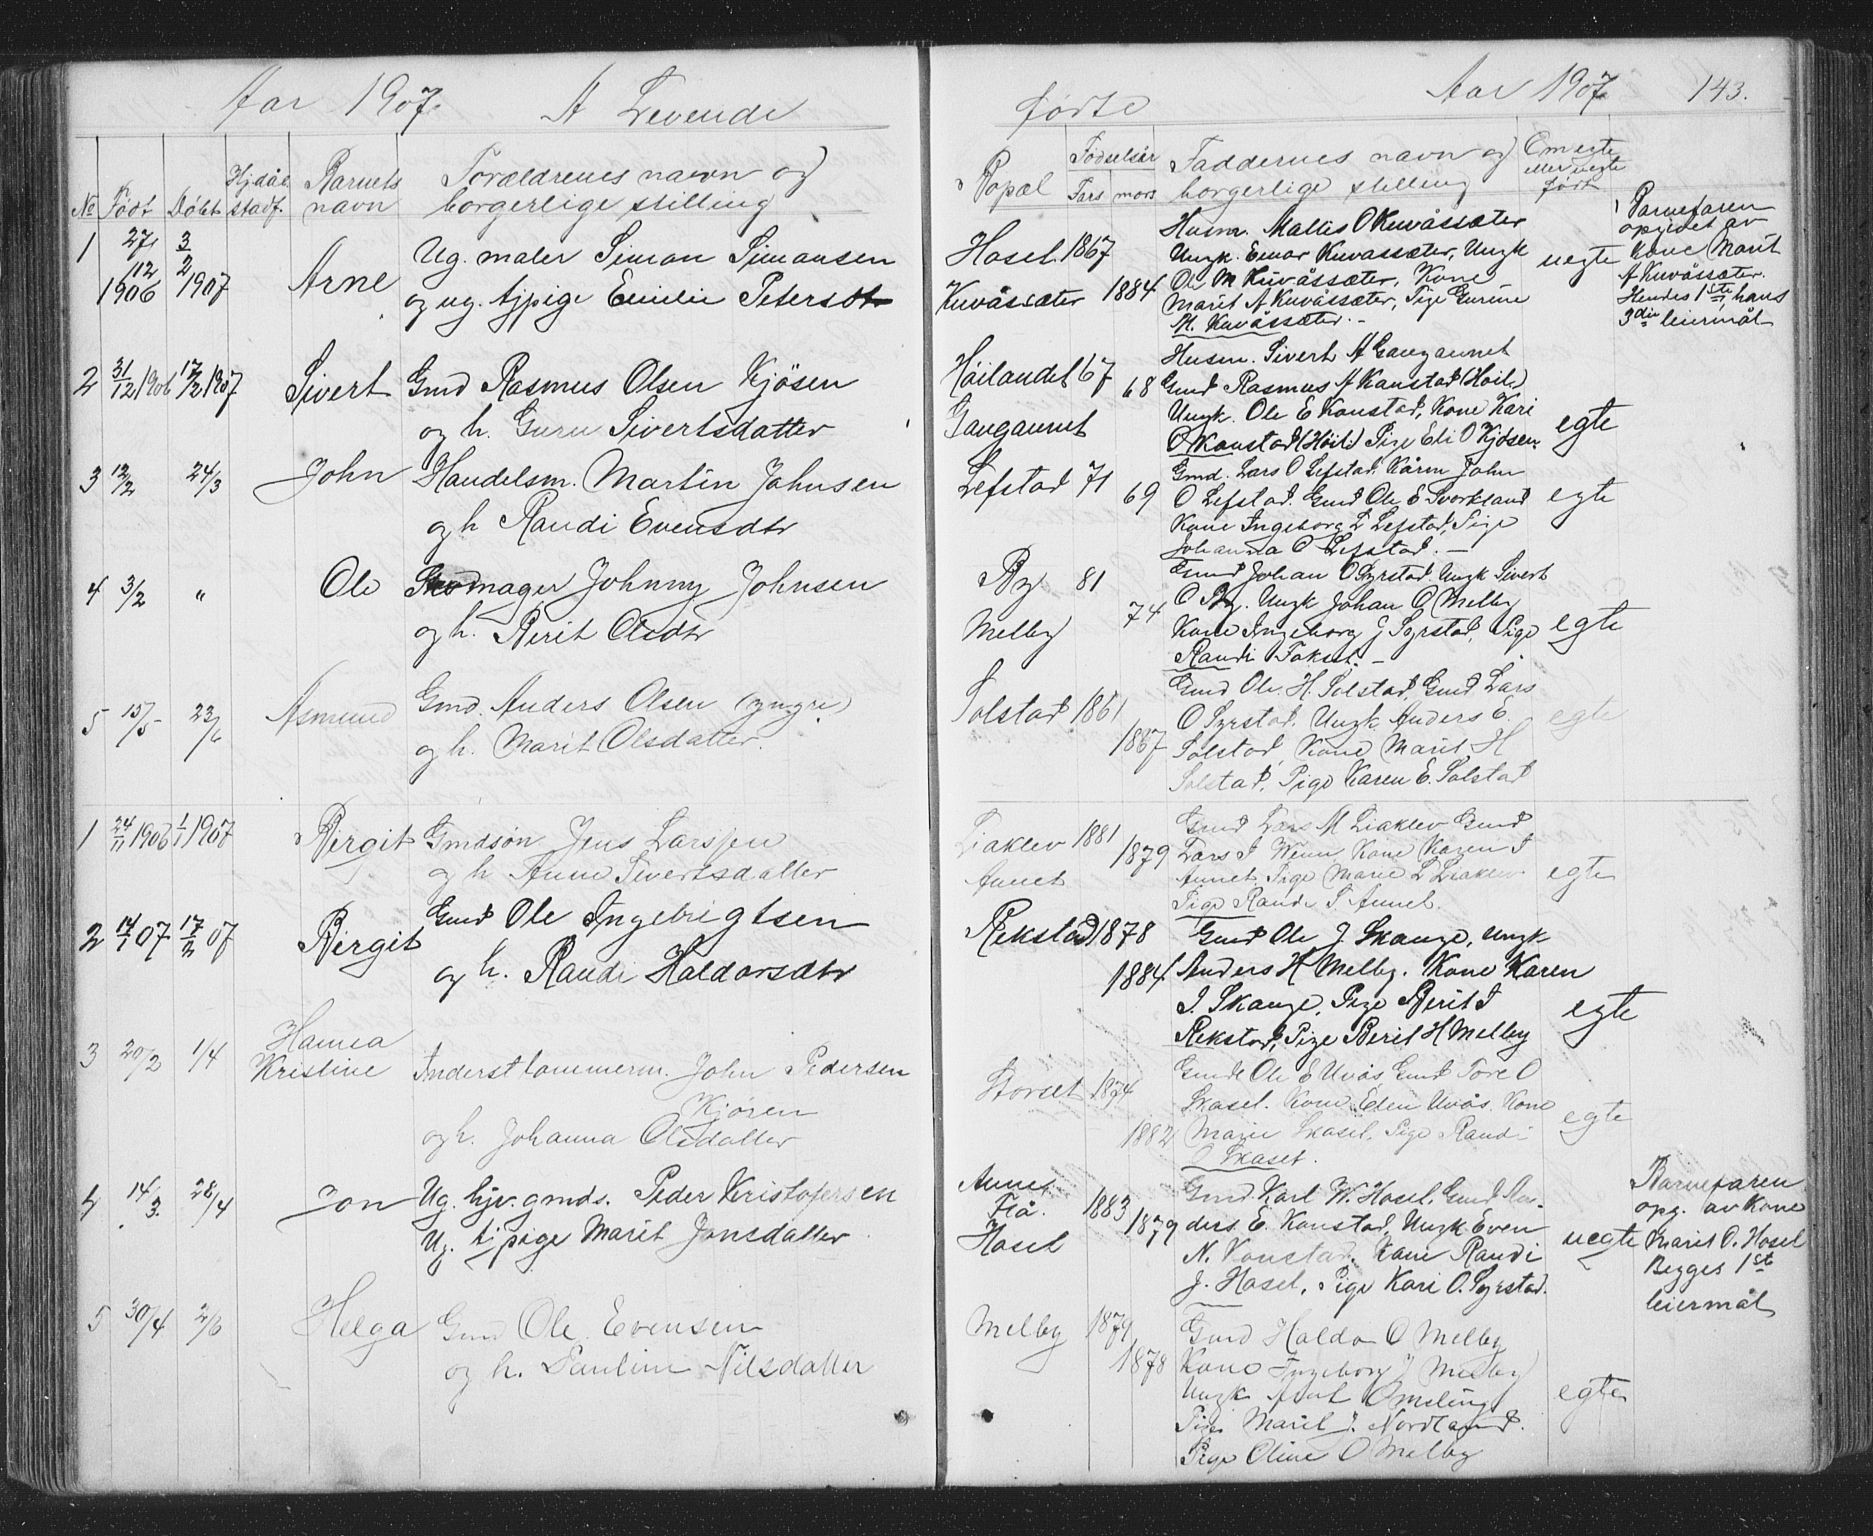 Aar 1907. A Levende
No Født Døbt Hjdåb stadf. Barnets navn Forældrenes navn og borgerlige stilling
1 27/12 1906 3/2 1907 Arne Ug. maler Simon Simonsen
og ug. tjpige Emilie Petersdtr
2 31/12 1906 17/2 1907 Sivert Gmd Rasmus Olsen Kjösen
og h. Guru Sivertsdatter
3 12/2 24/3 John Handelsm. Martin Johnsen
og h Randi Evensdtr
4 3/2 " Ole Skomager Johnny Johnsen
og h. Berit Olsdtr
5 15/5 23/6 Asmund Gmd. Anders Olsen (yngre)
og h. Marit Olsdatter.
1 24/11 1906 1/1 1907 Bergit Gmdsön Jens Larssen
og h Anne Sivertsdatter
2 14/1 07 17/2 07 Bergit Gmd Ole Ingebrigtsen
og h. Randi Haldorsdtr
3 20/2 1/4 Hanna
Kristine Inderst tömmerm. John Pedersen
Kjören
og h. Johanna Olsdatter
4 14/3. 28/4 Jon Ug. hjv. gmds. Peder Kristofersen
Ug. tjpige Marit Jonsdatter
5 30/4 2/6 Helga Gmd Ole Evensen
og h. Pauline Nilsdatter
födte Aar 1907 143.
Bopæl Födselsår Fars mors Faddernes navn og borgerlige stilling Om egte eller uegte født
Hosel 1867
Kuvåssæter 1884
Husm. Mattis O Kuvåssæter
Ungk. Einar Kuvassæter, Ungk
Ole M Kuvåssæter, Kone
Marit A Kuvåssæter, Pige Gurine
M. Kuvåssæter. -
uegte
Barnefaren
opgivet av
kone Marit
A Kuvåssæter.
Hendes 1ste hans
3die leiermål
Höilandet 67
68
Gangaunet
Husm. Sivert A Gangaunet
Gmd Rasmus A Kanstad (Höil.)
Ungk. Ole E Konstad, Kone Kari
O Konstad (Höil.) Pige Eli O Kjösen.
egte
Lefstad 71
69
Gmd. Lars O Lefstad. Kårm John
O Lefstad. Gmd Ole E Svorkland
Kone Ingeborg L Lefstad, Pige
Johanna O Lefstad. -
egte
By 81
74
Melby
Gmd Johan O Syrstad. Ungk Sivert
O By. Ungk Johan O Melby
Kone Ingeborg J Syrstad, Pige
Randi Fokset. -
egte
Solstad 1861
1867
Gmd Ole H. Solstad, Gmd Lars
O Syrstad. Ungk Anders E.
Solstad, Kone Marit H
Solstad, Pige Karen E. Solstad
egte
Liaklev 1881
1879
Aunet
Gmd Lars M Liaklev Gmd
Lars J Wenn Kone Karen J
Aunet Pige Marie L Liaklev
Pige Randi S Aunet.
egte
Rekstad 1878
1884
Gmd Ole J Skauge, ungk
Anders H Melby. Kone Karen
J. Skauge, Pige Berit J
Rekstad, Pige Berit H Melby
egte
Storset 1874
1882
Gmd Ole E Uvås Gmd Tore O
Skasel. Kone Elen Uvås. Kone
Marie Skasel, Pige Randi
O Skaset.
egte
Aunet
Flå. 1883
1879
Hosel
Gmd Karl W. Hosel, Gmd An-
ders E. Konstad, Ungk Even
N. Konstad. Kone Randi
J. Hosel, Pige Kari O. Syrstad.
uegte
Barnefaren
opg. av kone
Marit O. Hosel
Begges 1ste
leiermål
Melby 1879
1878
Gmd Haldo O Melby
Kone Ingeborg J Melby
Ungk
Pige Marit J. Nordtand.
Pige Oline O Melby
egte